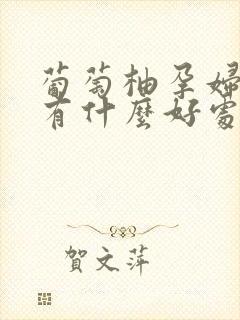 葡萄柚孕婦
有什麼好處
賀文萍